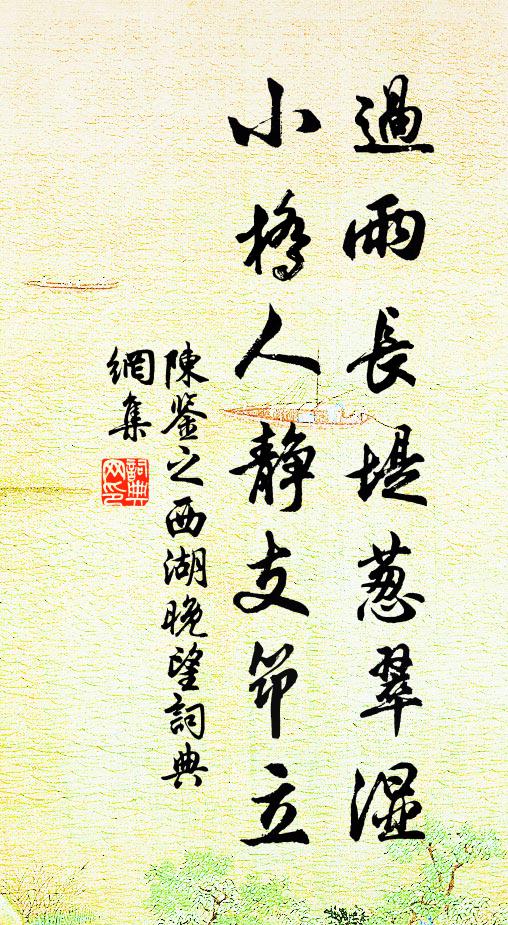 過雨長堤葱翠濕
小橋人静支笻立
陳鑒之西湖晚望詞典
網集
詞典網印